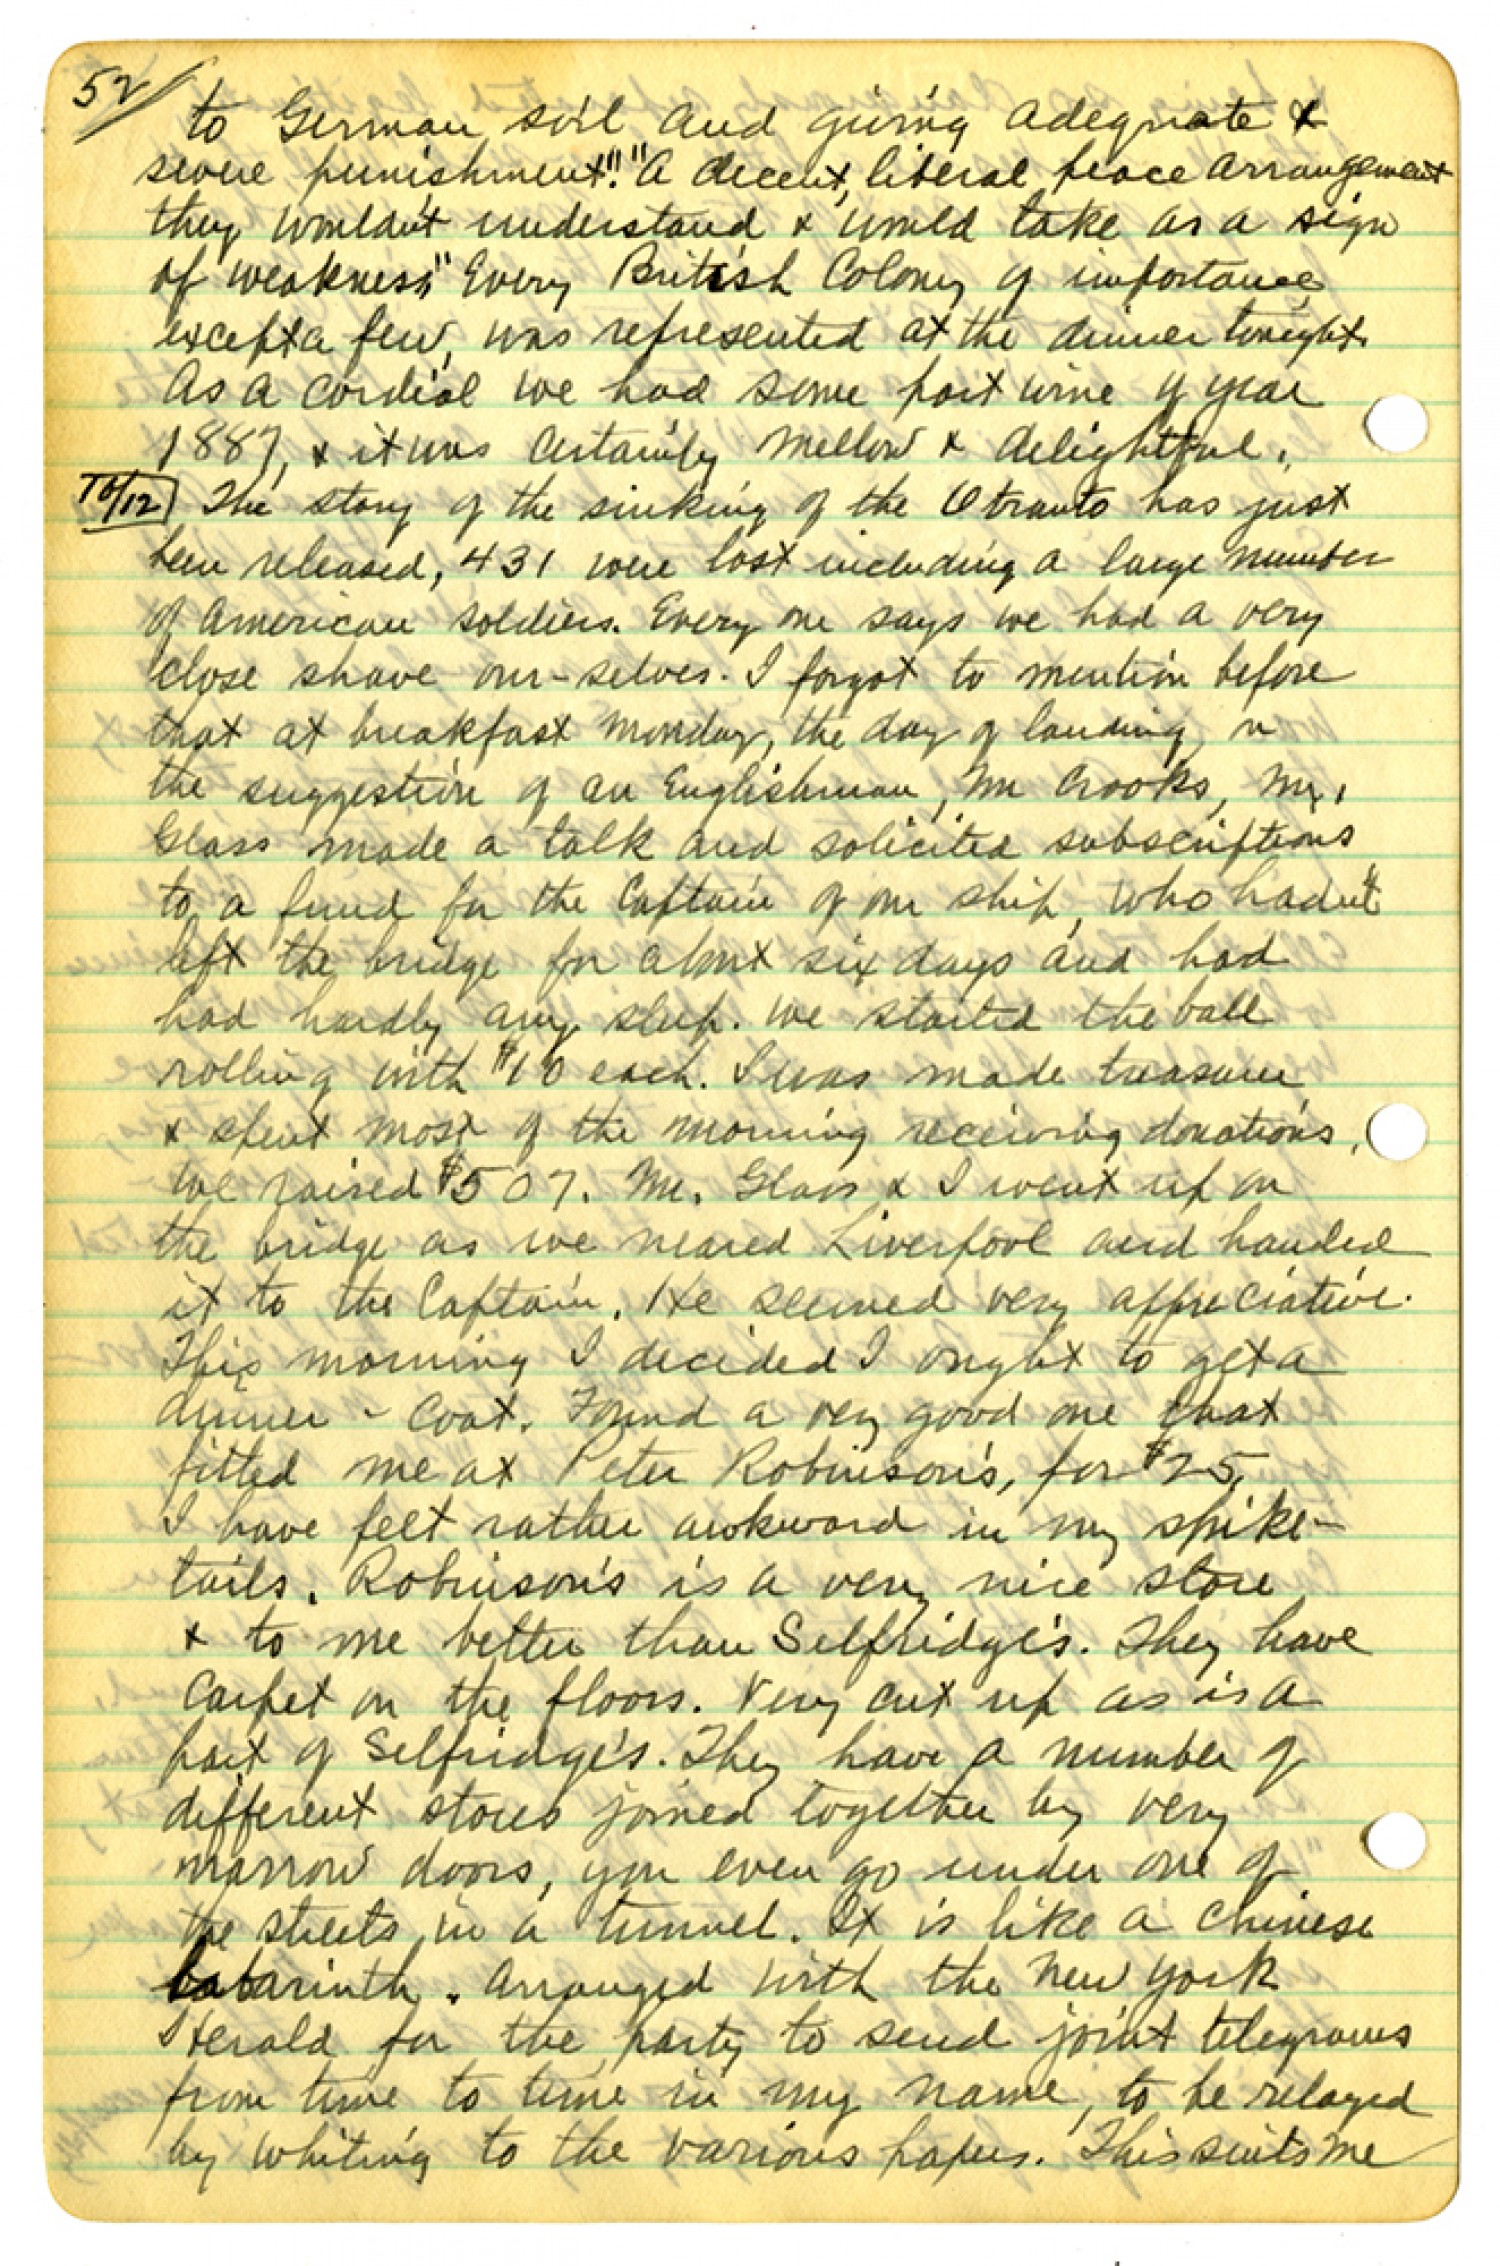 52
to German soil and giving adequate &
severe punishment"." "A decent, liberal peace arrangement
they wouldn't understand & would take as a sign
of weakness." Every British Colony of importance
except a few, was represented at the dinner tonight.
As a cordial we had some port wine of year
1887, & it was certainly mellow & delightful.
10/12 The story of the sinking of the Otranto has just
been released, 431 were lost including a large number
of American soldiers. Every one says we had a very
close shave our-selves. I forgot to mention before
that at breakfast Monday, the day of landing, on
the suggestion of an Englishman, Mr Crooks, Mr.
Glass made a talk and solicited subscriptions
to a fund for the Captain of our ship, who hadn't
left the bridge for about six days and had
had hardly any sleep. We started the ball
rolling with $10 each. I was made treasurer
& spent most of the morning receiving donations.
We raised $507. Mr. Glass & I went up on
the bridge as we neared Liverpool and handed
it to the Captain. He seemed very appreciative.
This morning I decided I ought to get a
dinner-coat. Found a very good one that
fitted me at Peter Robinson's, for $25.
I have felt rather awkward in my spike-
tails. Robinson's is a very nice store
& to me better than Selfridge's. They have
Carpet on the floors. Very cut up as is a
part of Selfridge's. They have a number of
different stores joined together by very
narrow doors, you even go under one of
the streets in a tunnel. It is like a Chinese
labarinth. Arranged with the New York
Herald for the party to send joint telegrams
from time to time in my name, to be relayed
by Whiting to the various papers. This suits me